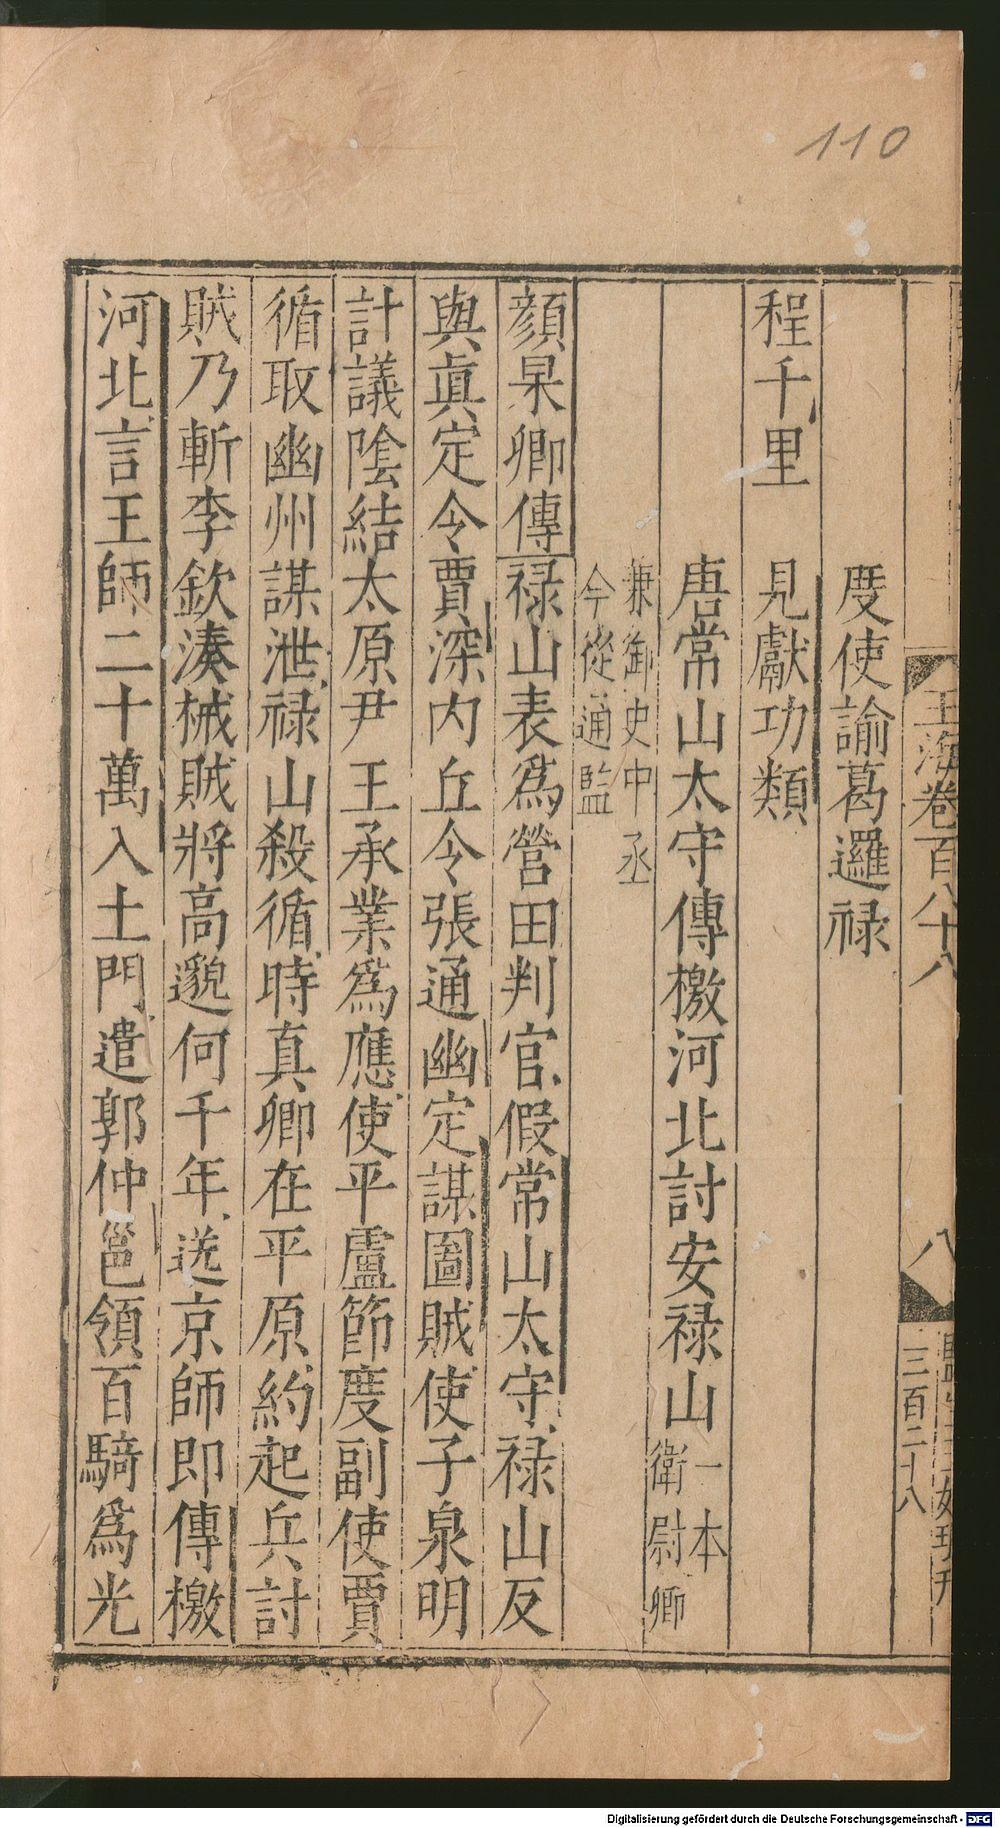 110
玉海卷百八十八
八
三百二十八
度使諭葛邏禄
程千里　見獻功類
唐常山太守傳檄河北討安禄山一本衛尉卿
兼御史中丞今從通監
顔杲卿傳禄山表爲營田判官假常山太守禄山反
與眞定令賈深内丘令張通幽定謀圖賊使子泉明
計議陰結太原尹王承業爲應使平盧節度副使賈
循取幽州謀泄禄山殺循時真卿在平原約起兵討
賊乃斬李欽湊械賊將高邈何千年送京師即傳檄
河北言王師二十萬入土門遣郭仲邕領百騎爲光
Digitalisierung gefördert durch die Deutsche Forschungsgemeinschaft - DFG